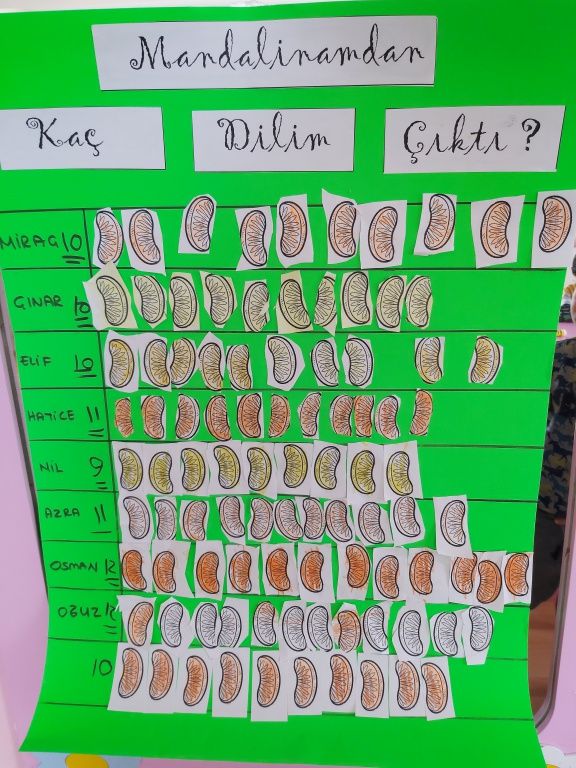 Mandalinamdan
Kaç Dilim Çıktı?
MİRAÇ 10
ÇINAR
ELİF
HATİCE 11
NİL 9
AZRA 11
OSMAN 12
OĞUZ 12
10